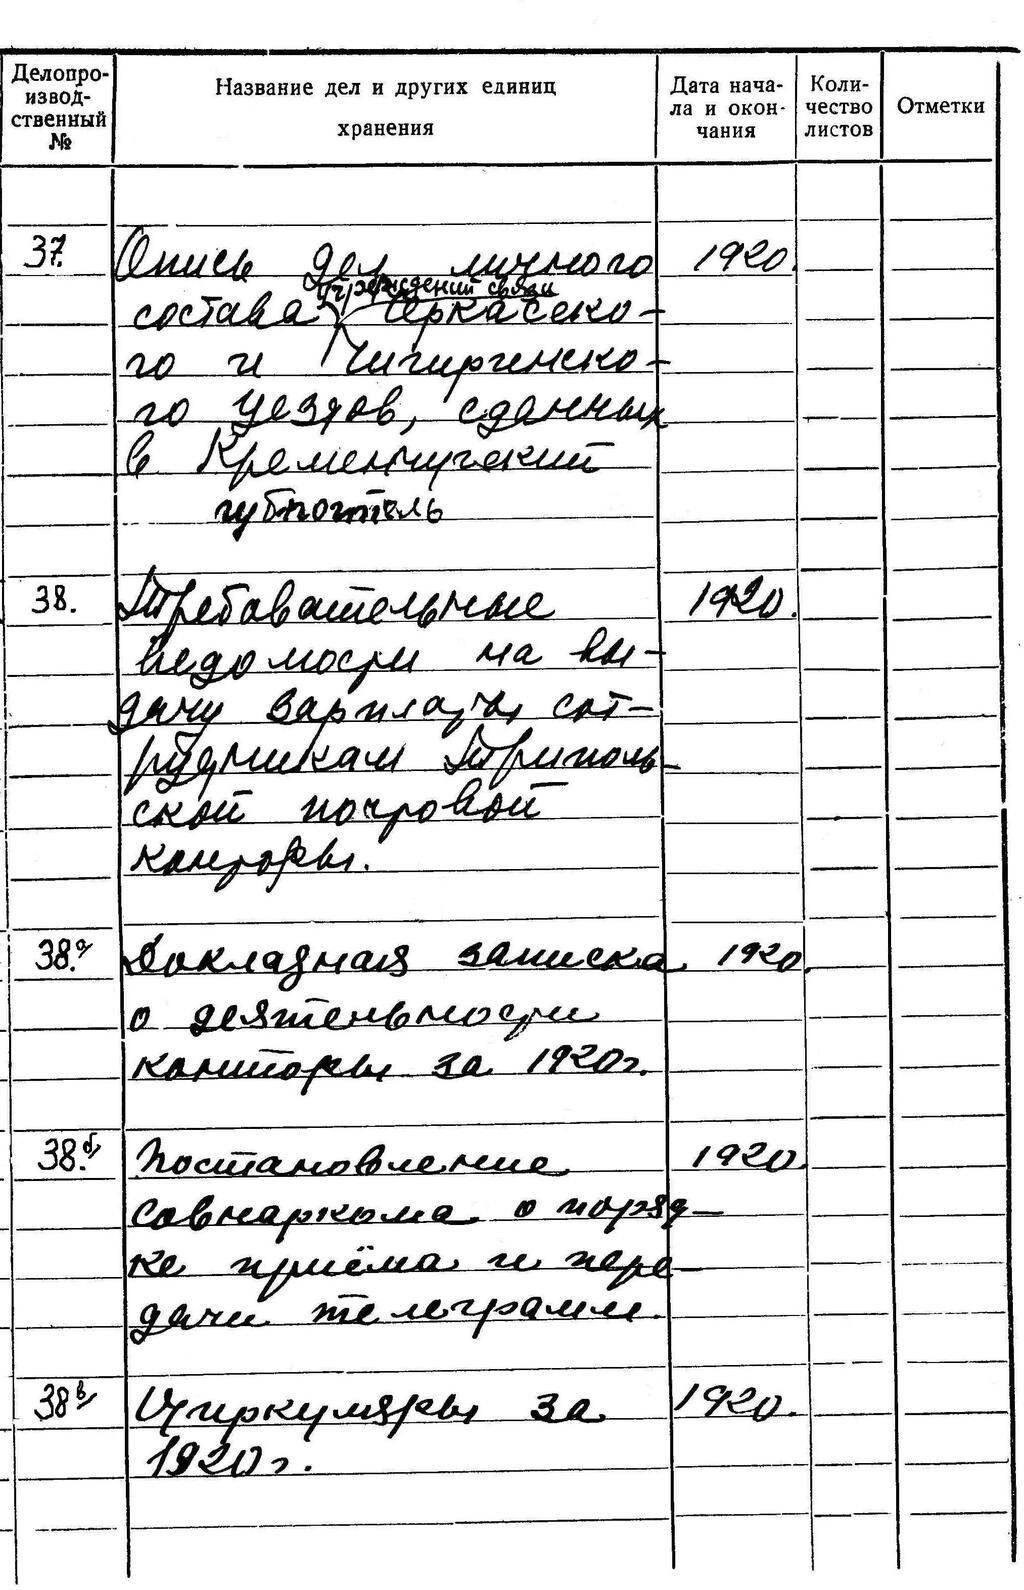 Делопро-
извод-
ственный
№
Название дел и других единиц
хранения
Дата нача-
ла и окон-
чания
Коли-
чество
листов
Отметки
37. Опись дел личного 1920.
учреждений связи
состава Черкасско-
го и Чигиринско-
го уездов, сданных
в Кременчугский
губпочтель
38. Требовательные 1920.
ведомости на вы-
дачу зарплаты сот-
рудникам Триполь-
ской почтовой
конторы.
38.а Докладная записка 1920
о деятельности
конторы за 1920г.
38.б Постановление 1920
совнаркома о поряд-
ке приёма и пере-
дачи телеграмм.
38в Циркуляры за 1920.
1920г.